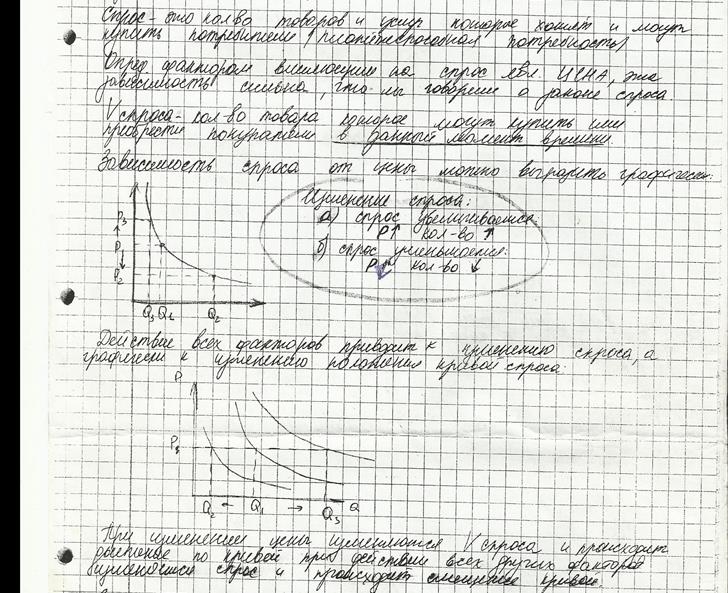 Спрос - это кол-во товаров и услуг которое хотят и могут
купить потребители (платёжеспособная потребность)
Опред фактором влияющим на спрос явл. ЦЕНА, эта
зависимость сильна, что мы говорим о законе спроса.
V спроса - кол-во товара которое могут купить или
приобрести покупатели в данный момент времени.
Зависимость спроса от цены можно выразить графически:
Изменение спроса:
а) спрос увеличивается:
P↑ кол-во ↑
б) спрос уменьшается:
P кол-во ↓
P3
P1
P2
Q3 Q1 Q2
Действие всех факторов приводит к изменению спроса, а
графически к изменению положения кривой спроса:
P
P1
Q2 ← Q1 → Q3 Q
При изменении цены изменяются V спроса и происходит
движение по кривой при действии всех других факторов
изменяется спрос и происходит смещение кривой.